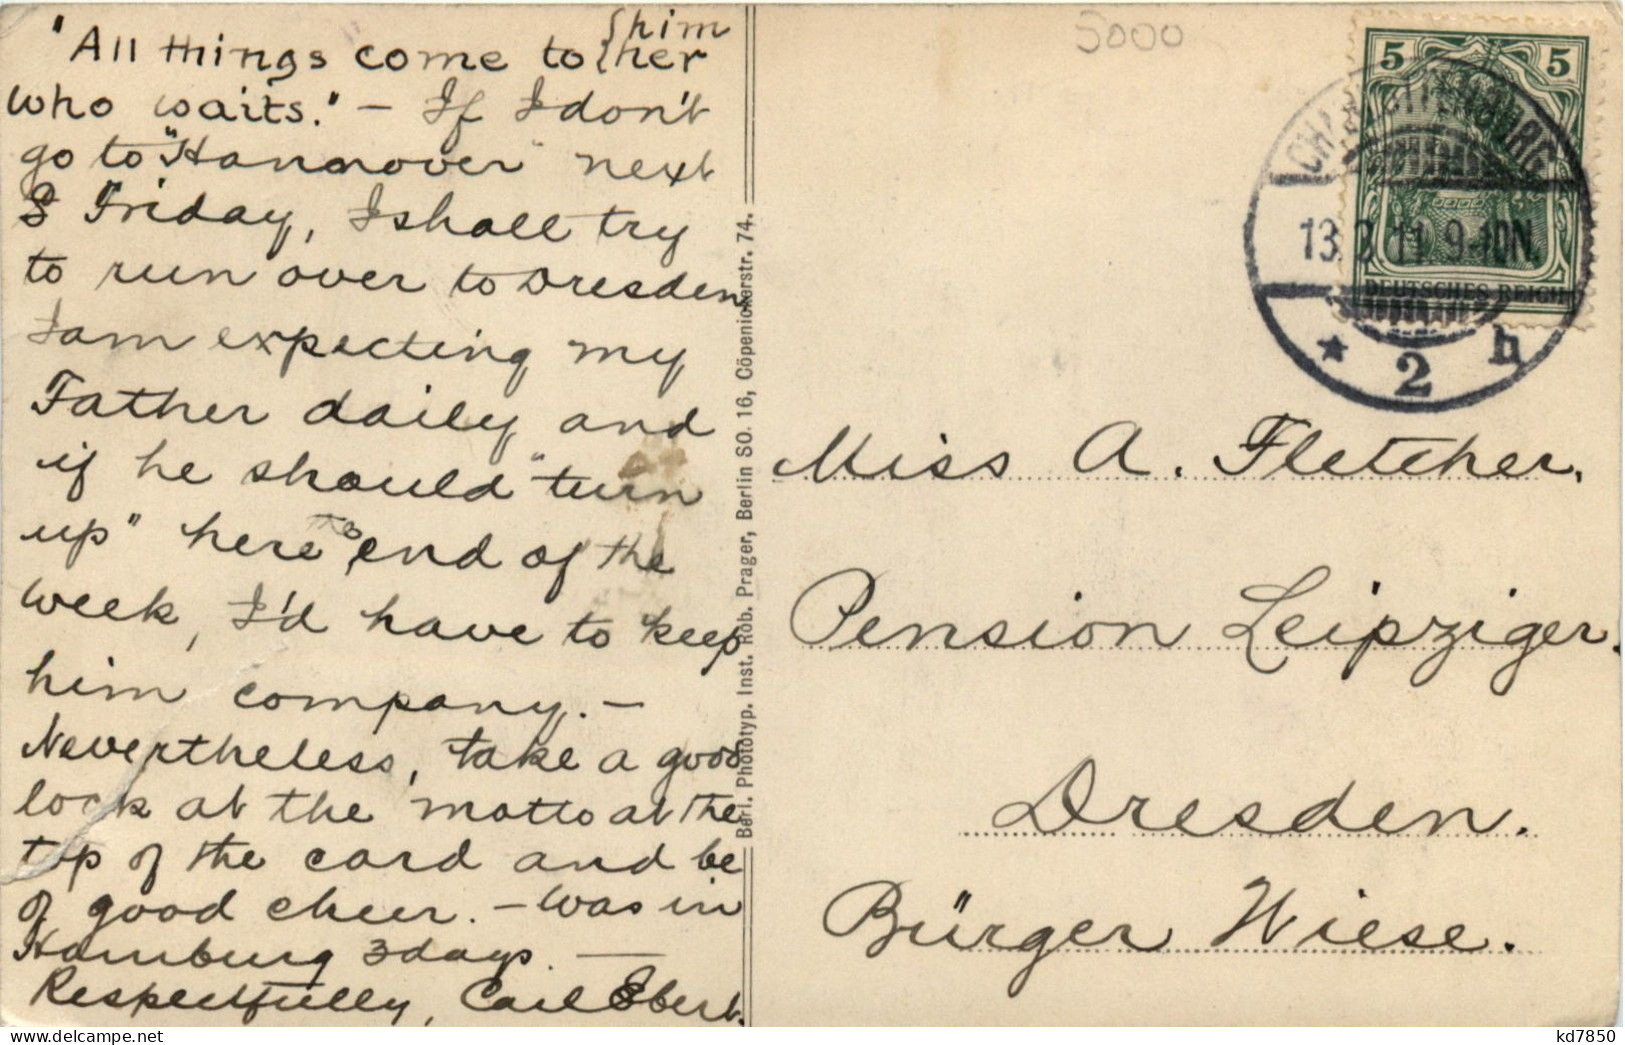 {him
"All things come to {her
who waits." - If I don't
go to "Hannover" next
Friday, I shall try
to run over to Dresden
I am expecting my
Father daily and
if he should "turn
up" here end of the
week, I'd have to keep
him company. -
Nevertheless, take a good
look at the motto at the
top of the card and be
of good cheer. - Was in
Hamburg 3 days. —
Respectfully, Carl Ebert.
Berl. Phototyp. Inst. Rob. Prager, Berlin SO. 16, Cöpenickerstr. 74.
5000
5 5
DEUTSCHES REICH
CHARLOTTENBURG
13.3.11. 9-10N.
* 2 h
Miss A. Fletcher.
Pension Leipziger.
Dresden.
Bürger Wiese.
kd7850